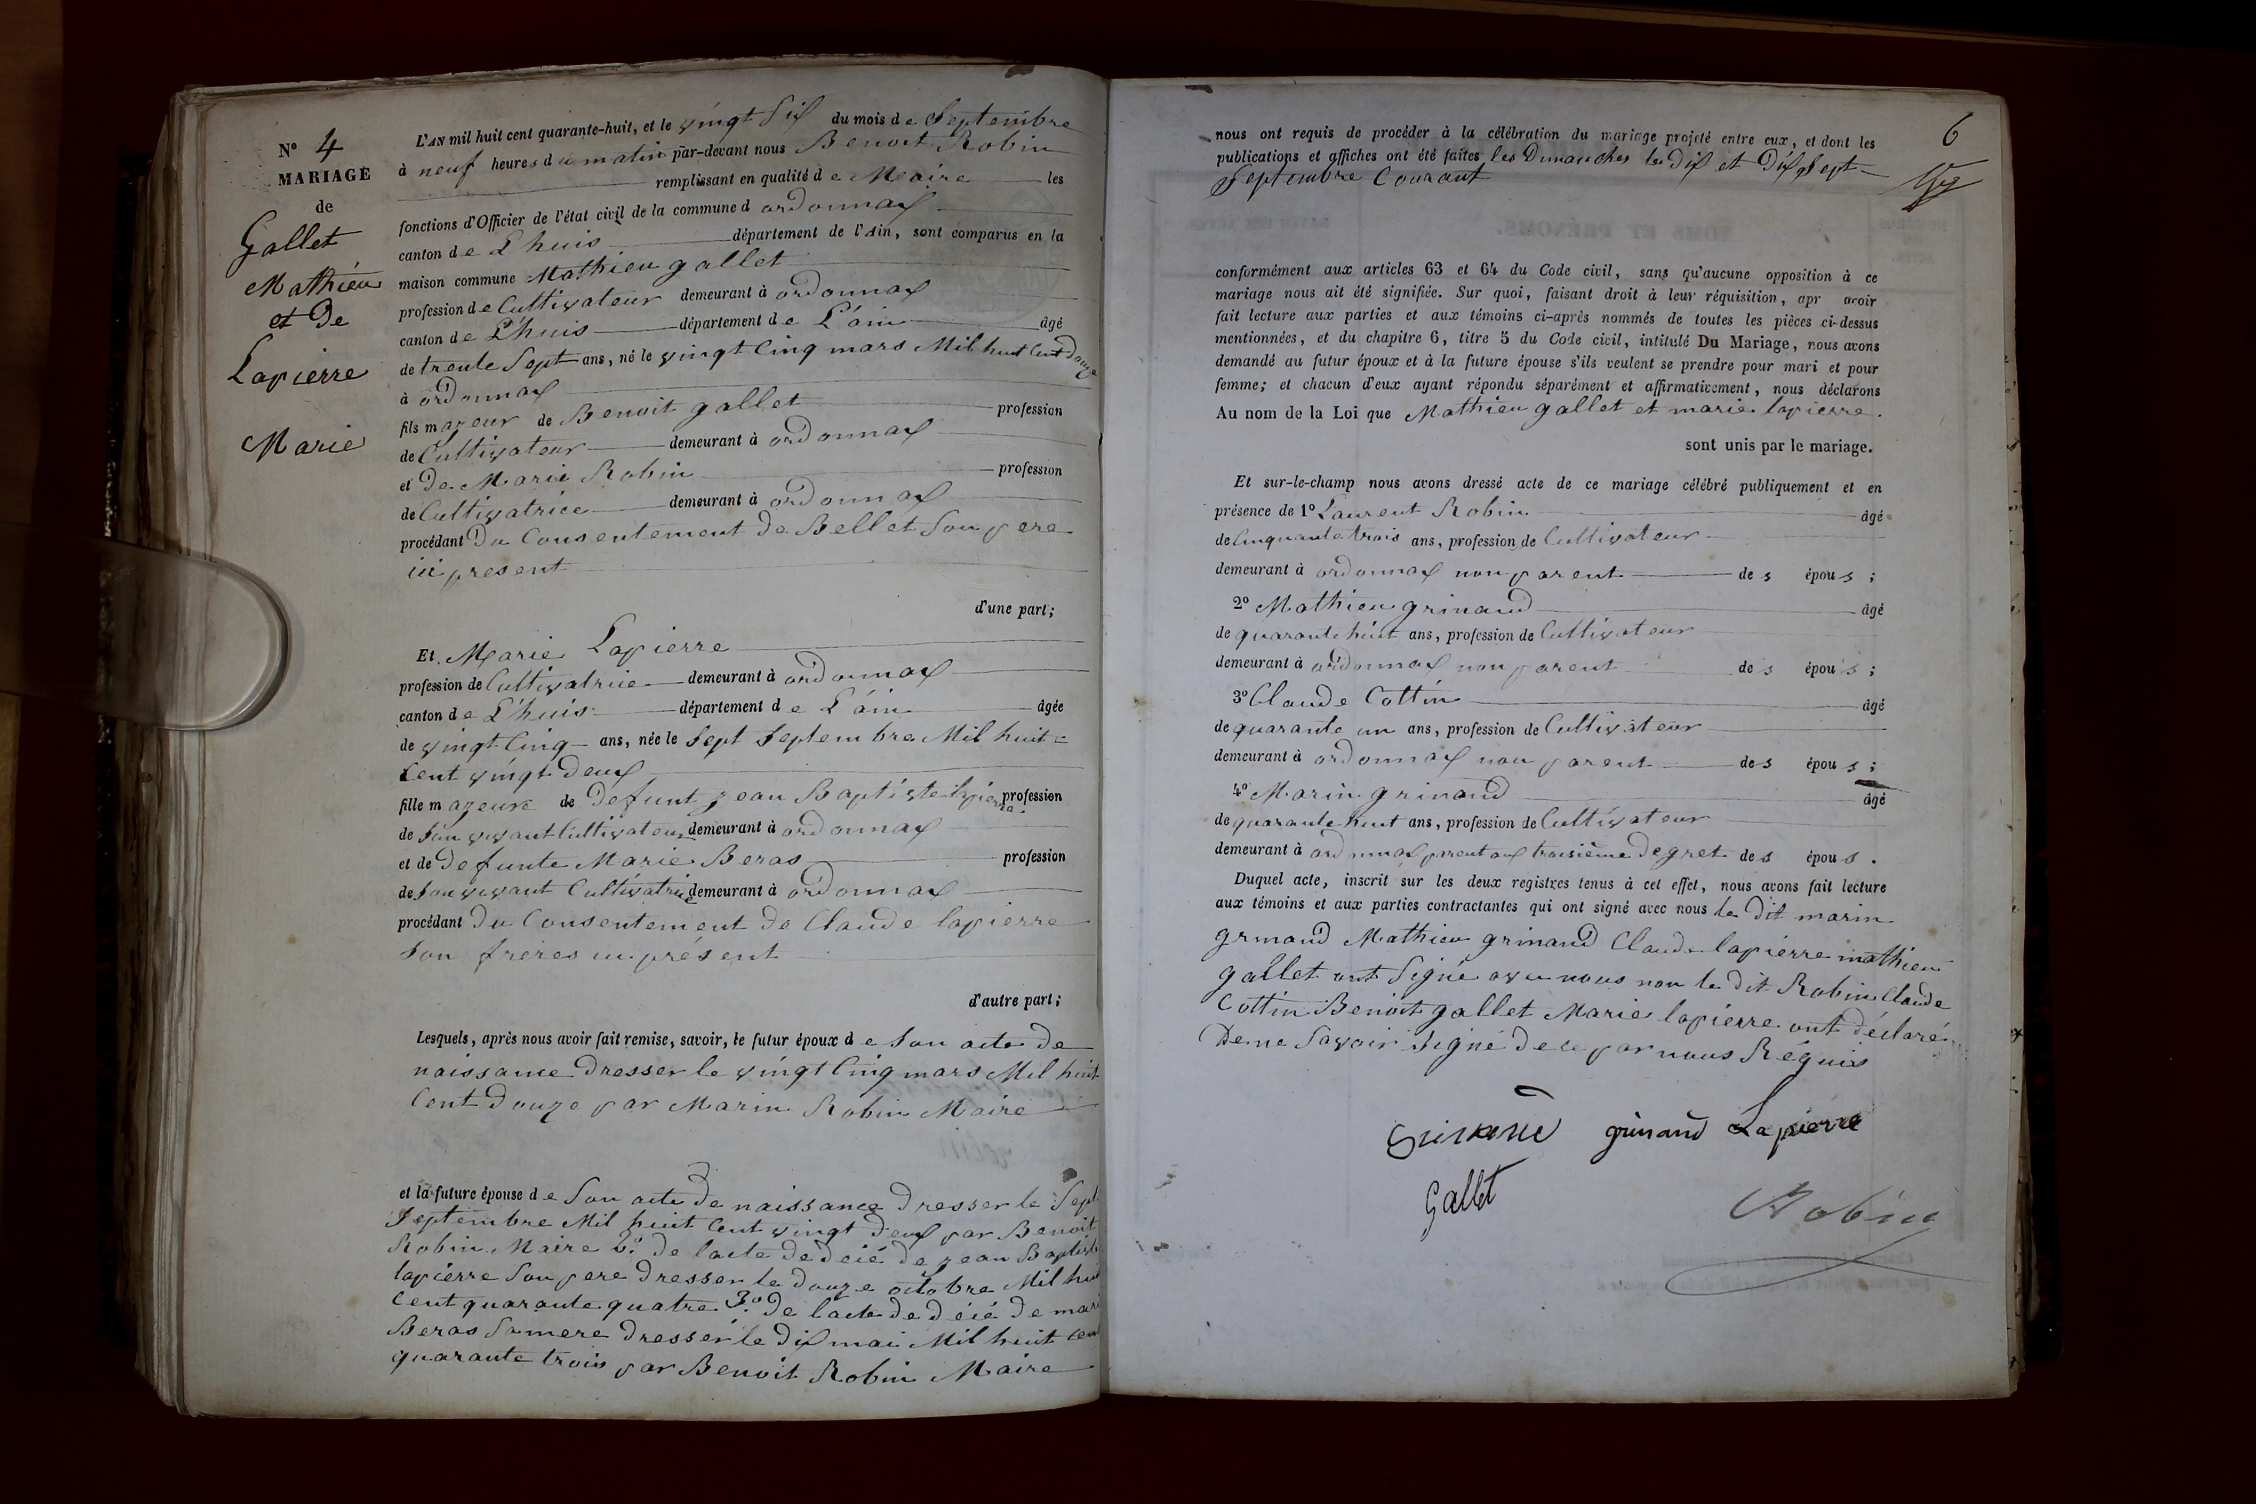 N° 4
MARIAGE
de
Gallet
Mathieu
et De
Lapierre
Marie
L'AN mil huit cent quarante-huit, et le vingt Six du mois de Septembre
à neuf heures du matin par-devant nous Benoit Robin
remplissant en qualité de Maire les
fonctions d'Officier de l'état civil de la commune d ordonnax
canton de L'huis département de l'Ain, sont comparus en la
maison commune Mathieu gallet
profession de Cultivateur demeurant à ordonnax
canton de L'huis département de L'ain âgé
de trente Sept ans, né le vingt Cinq mars Mil huit Cent douze
à ordonnax
fils majeur de Benoit gallet profession
de Cultivateur demeurant à ordonnax
et De Marie Robin profession
de Cultivatrice demeurant à ordonnax
procédant Du Consentement De Bellet Son pere
ici present
d'une part;
Et Marie Lapierre
profession de Cultivatrice demeurant à ordonnax
canton de L'huis département de L'ain âgée
de vingt Cinq ans, née le Sept Septembre Mil huit=
Cent vingt Deux
fille majeure de Defunt jean Baptiste lapierre profession
de Son vivant Cultivateur demeurant à ordonnax
et de Defunte Marie Beras profession
de Son vivant Cultivatrice demeurant à ordonnax
procédant Du Consentement De Claude lapierre
Son freres ici présent
d'autre part;
Lesquels, après nous avoir fait remise, savoir, le futur époux de Son acte De
naissance Dresser le vingt Cinq mars Mil huit
Cent Douze par Marin Robin Maire
et la future épouse de Son acte De naissance Dresser le Sept
Septembre Mil huit Cent vingt Deux par Benoit
Robin Maire 2° De lacte De déié De jean Baptiste
lapierre Son pere Dresser le Douze octobre Mil huit
Cent quarante quatre 3° De lacte De déié De mari
Beras Sa mere Dresser le Dix mai Mil huit Cent
quarante trois par Benoit Robin Maire
6
nous ont requis de procéder à la célébration du mariage projeté entre eux, et dont les
publications et affiches ont été faites les Dimanches le Dix et Dix Sept=
Septembre Courant
conformément aux articles 63 et 64 du Code civil, sans qu'aucune opposition à ce
mariage nous ait été signifiée. Sur quoi, faisant droit à leur réquisition, apr avoir
fait lecture aux parties et aux témoins ci-après nommés de toutes les pièces ci-dessus
mentionnées, et du chapitre 6, titre 5 du Code civil, intitulé Du Mariage, nous avons
demandé au futur époux et à la future épouse s'ils veulent se prendre pour mari et pour
femme; et chacun d'eux ayant répondu séparément et affirmativement, nous déclarons
Au nom de la Loi que Mathieu gallet et marie lapierre.
sont unis par le mariage.
Et sur-le-champ nous avons dressé acte de ce mariage célébré publiquement et en
présence de 1° Laurent Robin âgé
de Cinquante trois ans, profession de Cultivateur
demeurant à ordonnax non parent des épous;
2° Mathieu grinand âgé
de quarante huit ans, profession de Cultivateur
demeurant à ordonnax non parent des épous;
3° Claude Cottin âgé
de quarante un ans, profession de Cultivateur
demeurant à ordonnax non parent des épous;
4° Marin grinand âgé
de quarante huit ans, profession de Cultivateur
demeurant à ordonnax parent aux troisième Degret des épous.
Duquel acte, inscrit sur les deux registres tenus à cet effet, nous avons fait lecture
aux témoins et aux parties contractantes qui ont signé avec nous le Dit marin
grinand Mathieu grinand Claude lapierre mathieu
gallet ont Signé avec nous non le Dit Robin Claude
Cottin Benoit gallet Marie lapierre ont déclaré
De ne Savoir Signé De ce par nous Réquis
Grinand grinand Lapierre
Gallet
Robin